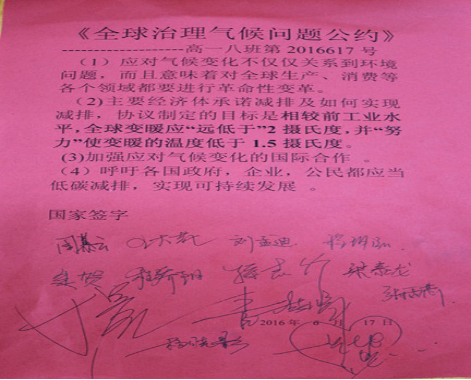 《全球治理气候问题公约》
------------------高一八班第 2016617 号
（1）应对气候变化不仅仅关系到环境
问题，而且意味着对全球生产、消费等
各个领域都要进行革命性变革。
(2)主要经济体承诺减排及如何实现
减排，协议制定的目标是相较前工业水
平，全球变暖应“远低于”2 摄氏度，并“努
力”使变暖的温度低于 1.5 摄氏度。
(3)加强应对气候变化的国际合作 。
（4）呼吁各国政府，企业，公民都应当
低碳减排，实现可持续发展 。
国家签字
2016 年 6 月 17 日